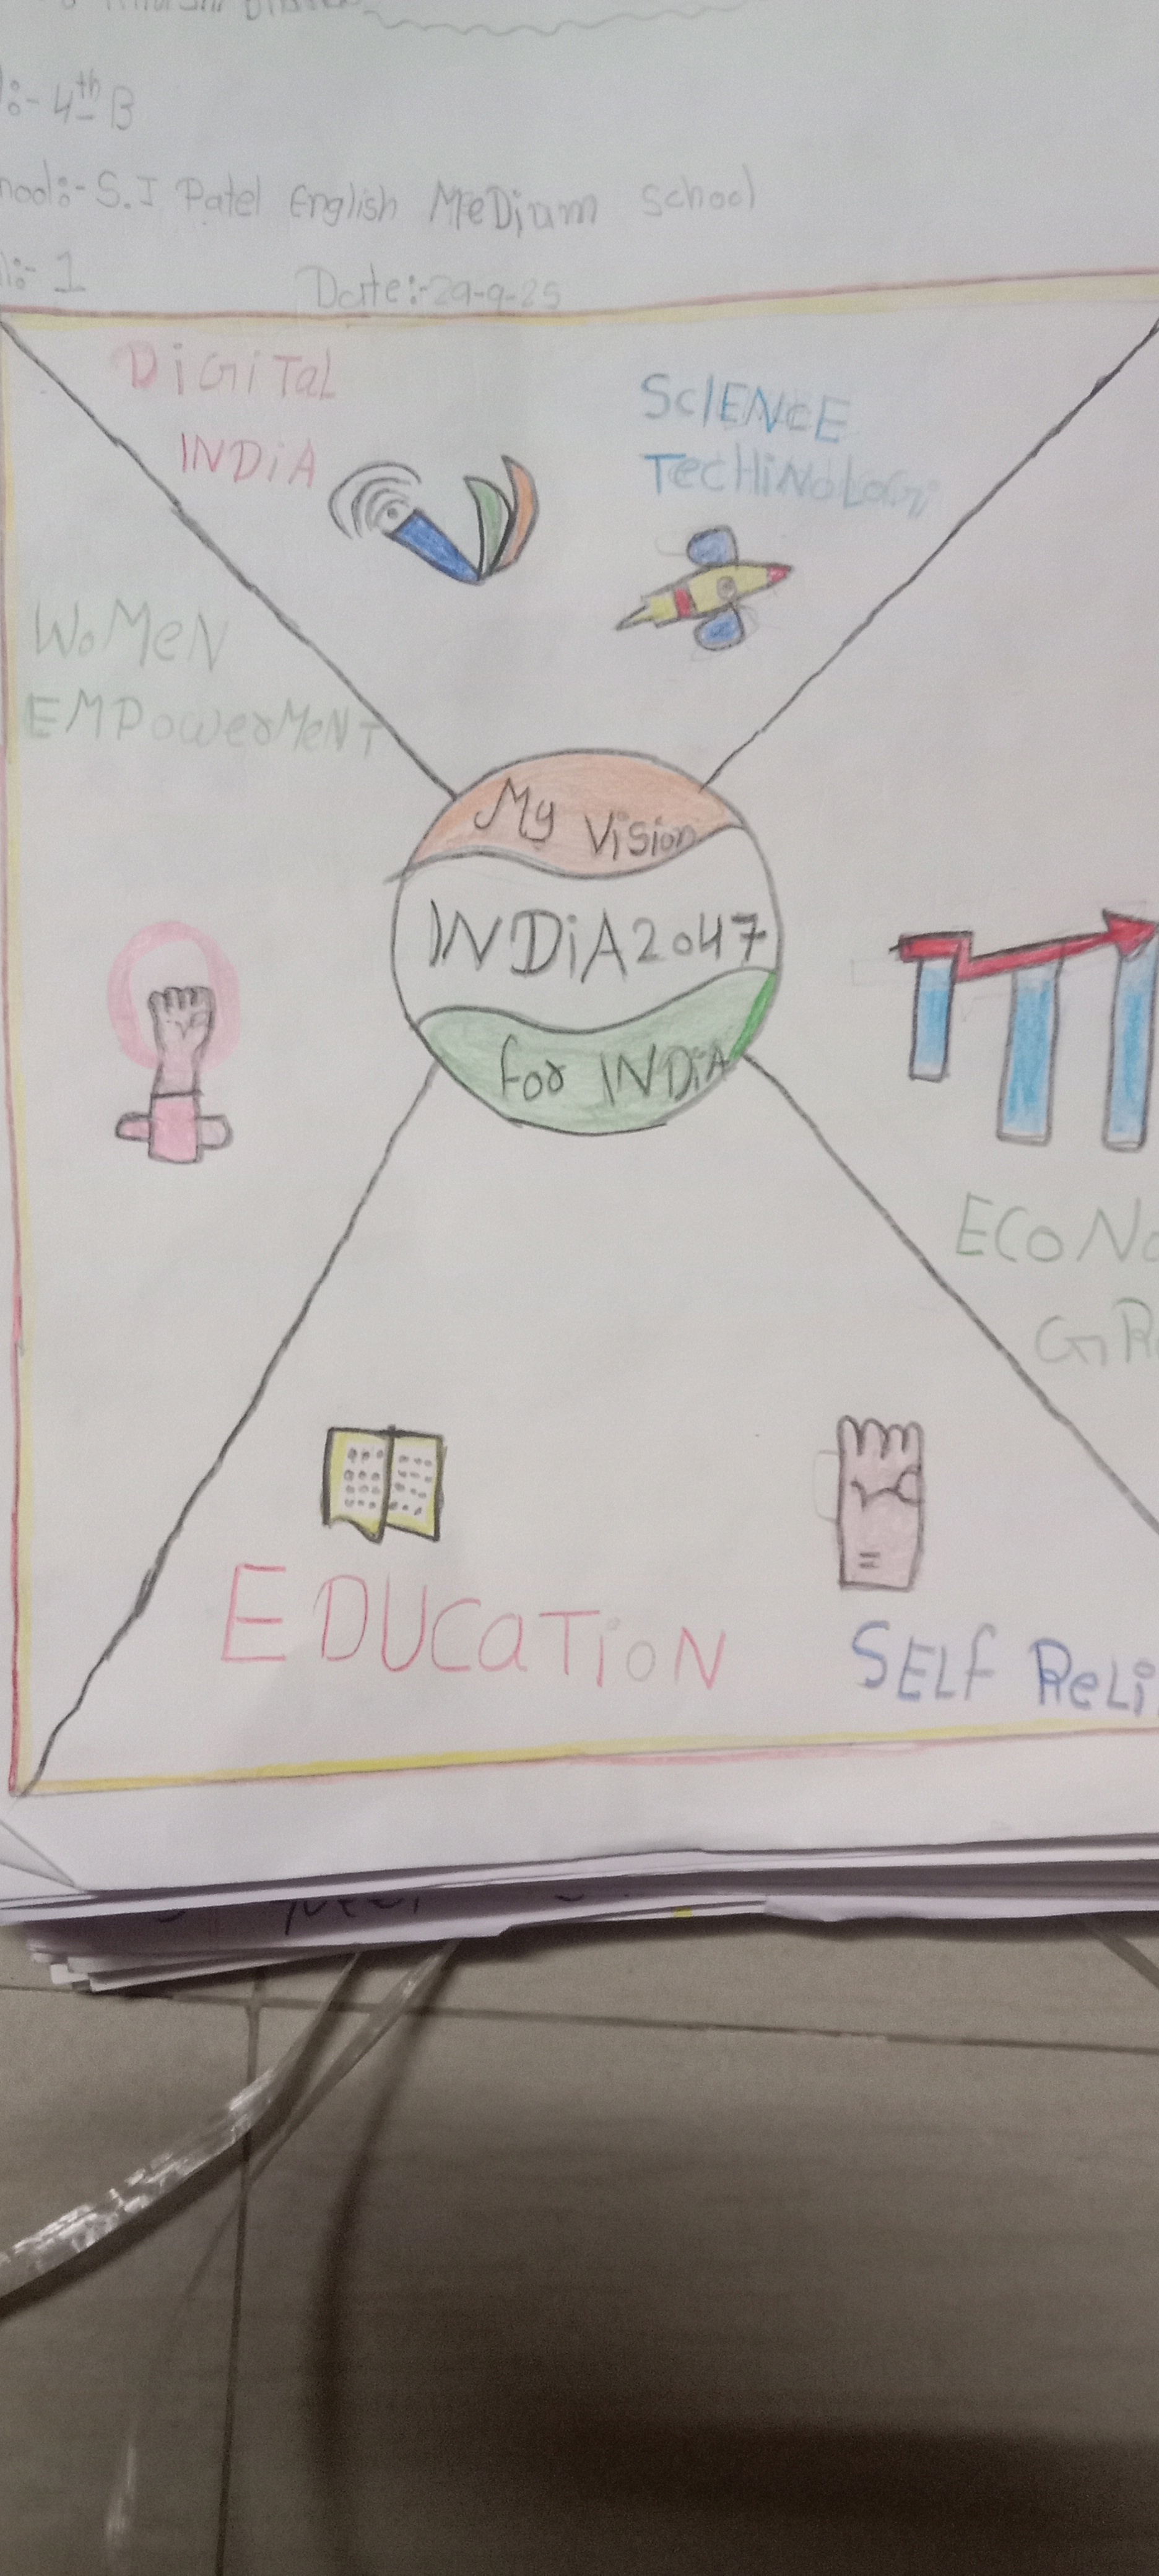 :- 4th B
ool:- S.J Patel English MeDium School
:- 1 Date:- 29-9-25
DiGiTaL
INDiA
ScIENcE
TecHiNoLoGi
WoMeN
EMPowerMeNT
My Vision
INDiA2047
for INDiA
ECoNo
GR
EDUcaTioN
SELf ReLi